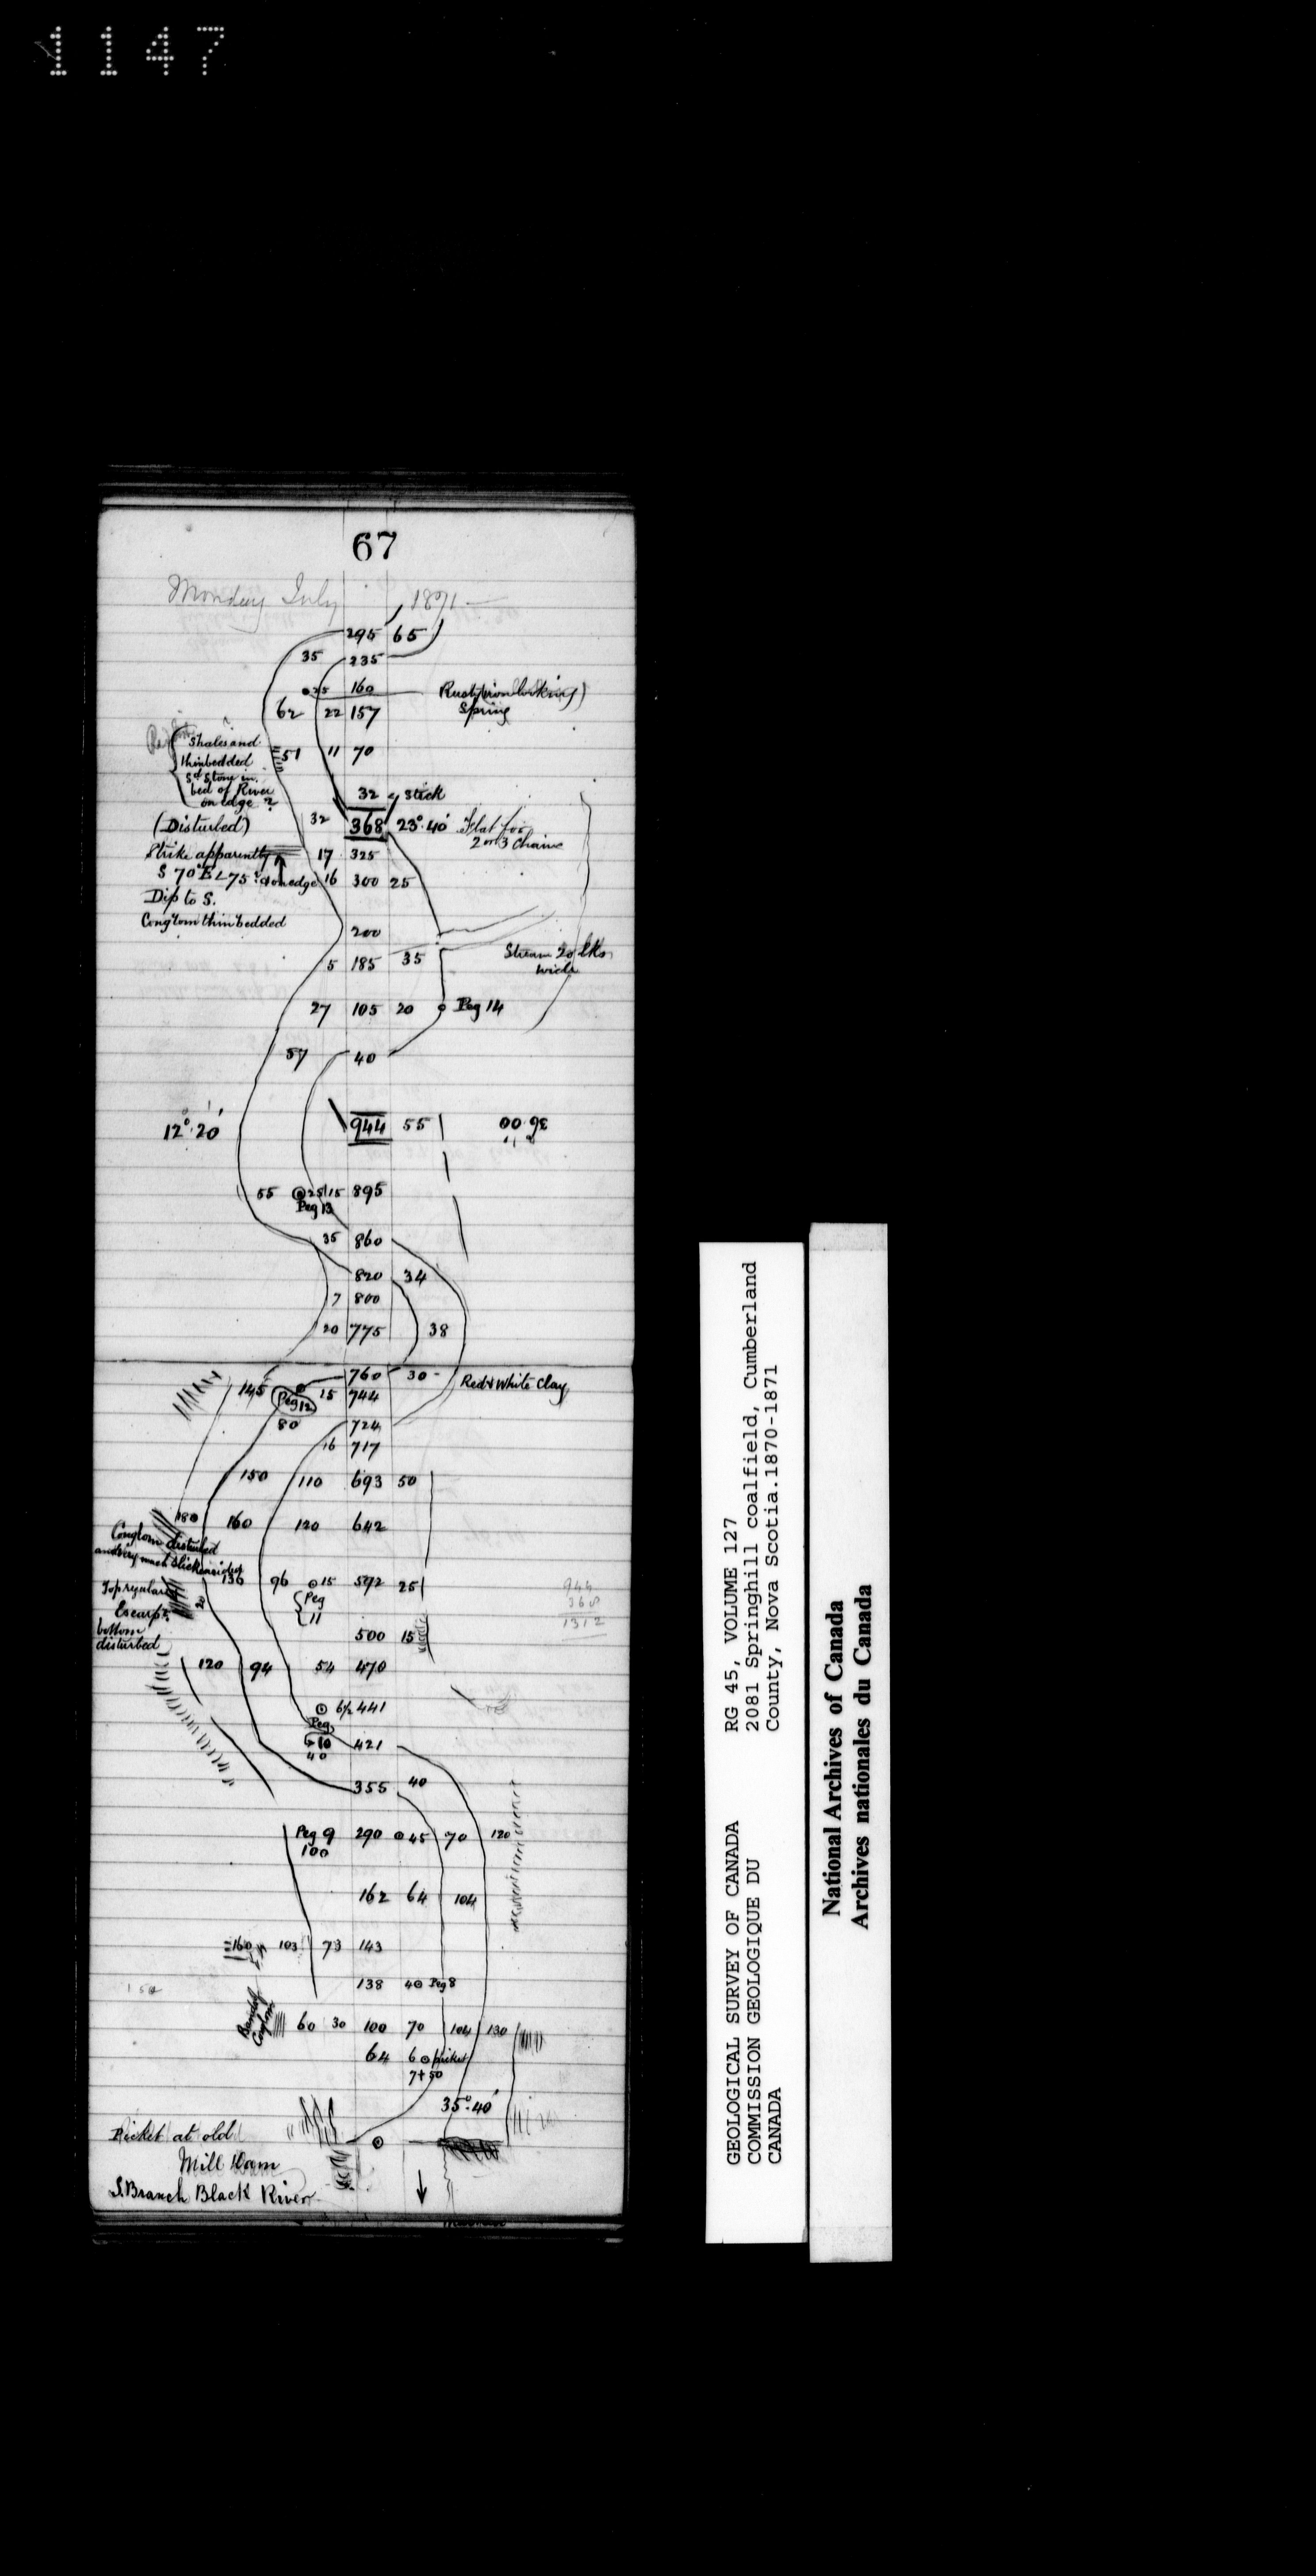 1147
67
Monday July 1871
295 65
35 235
25 160 Rusty (iron looking)
62 22 157 Spring
Shales and
thin bedded
Sd Stone in
bed of River
on edge ?
51 11 70
32 Stick
(Disturbed) 32 368 23°.40' Flat for
2 or 3 chains
Strike apparently 17 325
S 70° E < 75° & on edge 16 300 25
Dip to S.
Conglom thin bedded
200
5 185 35 Stream 20 lks
wide
27 105 20 Peg 14
57 40
12°.20' 944 55 36.00
55 25 15 895
Peg 13
35 860
820 34
7 800
20 775 38
760 30 Red & White Clay
145 Peg 12 15 744
80 724
16 717
150 110 693 50
180 160 120 642
Conglom disturbed
and very much slickensided
136 96 15 592 25
Peg
11
Top regular
Escarpt
bottom
disturbed
20
944
368
1312
500 15
120 94 54 470
6½ 441
Peg
10
40
421
355 40
Peg 9 290 45 70 120
100
162 64 104
160 103 73 143
138 4 Peg 8
150
Band of
Conglom
60 30 100 70 104 130
64 6 picket
7+50
35°.40'
Picket at old
Mill Dam
S. Branch Black River
GEOLOGICAL SURVEY OF CANADA
COMMISSION GEOLOGIQUE DU
CANADA
RG 45, VOLUME 127
2081 Springhill coalfield, Cumberland
County, Nova Scotia.1870-1871
National Archives of Canada
Archives nationales du Canada